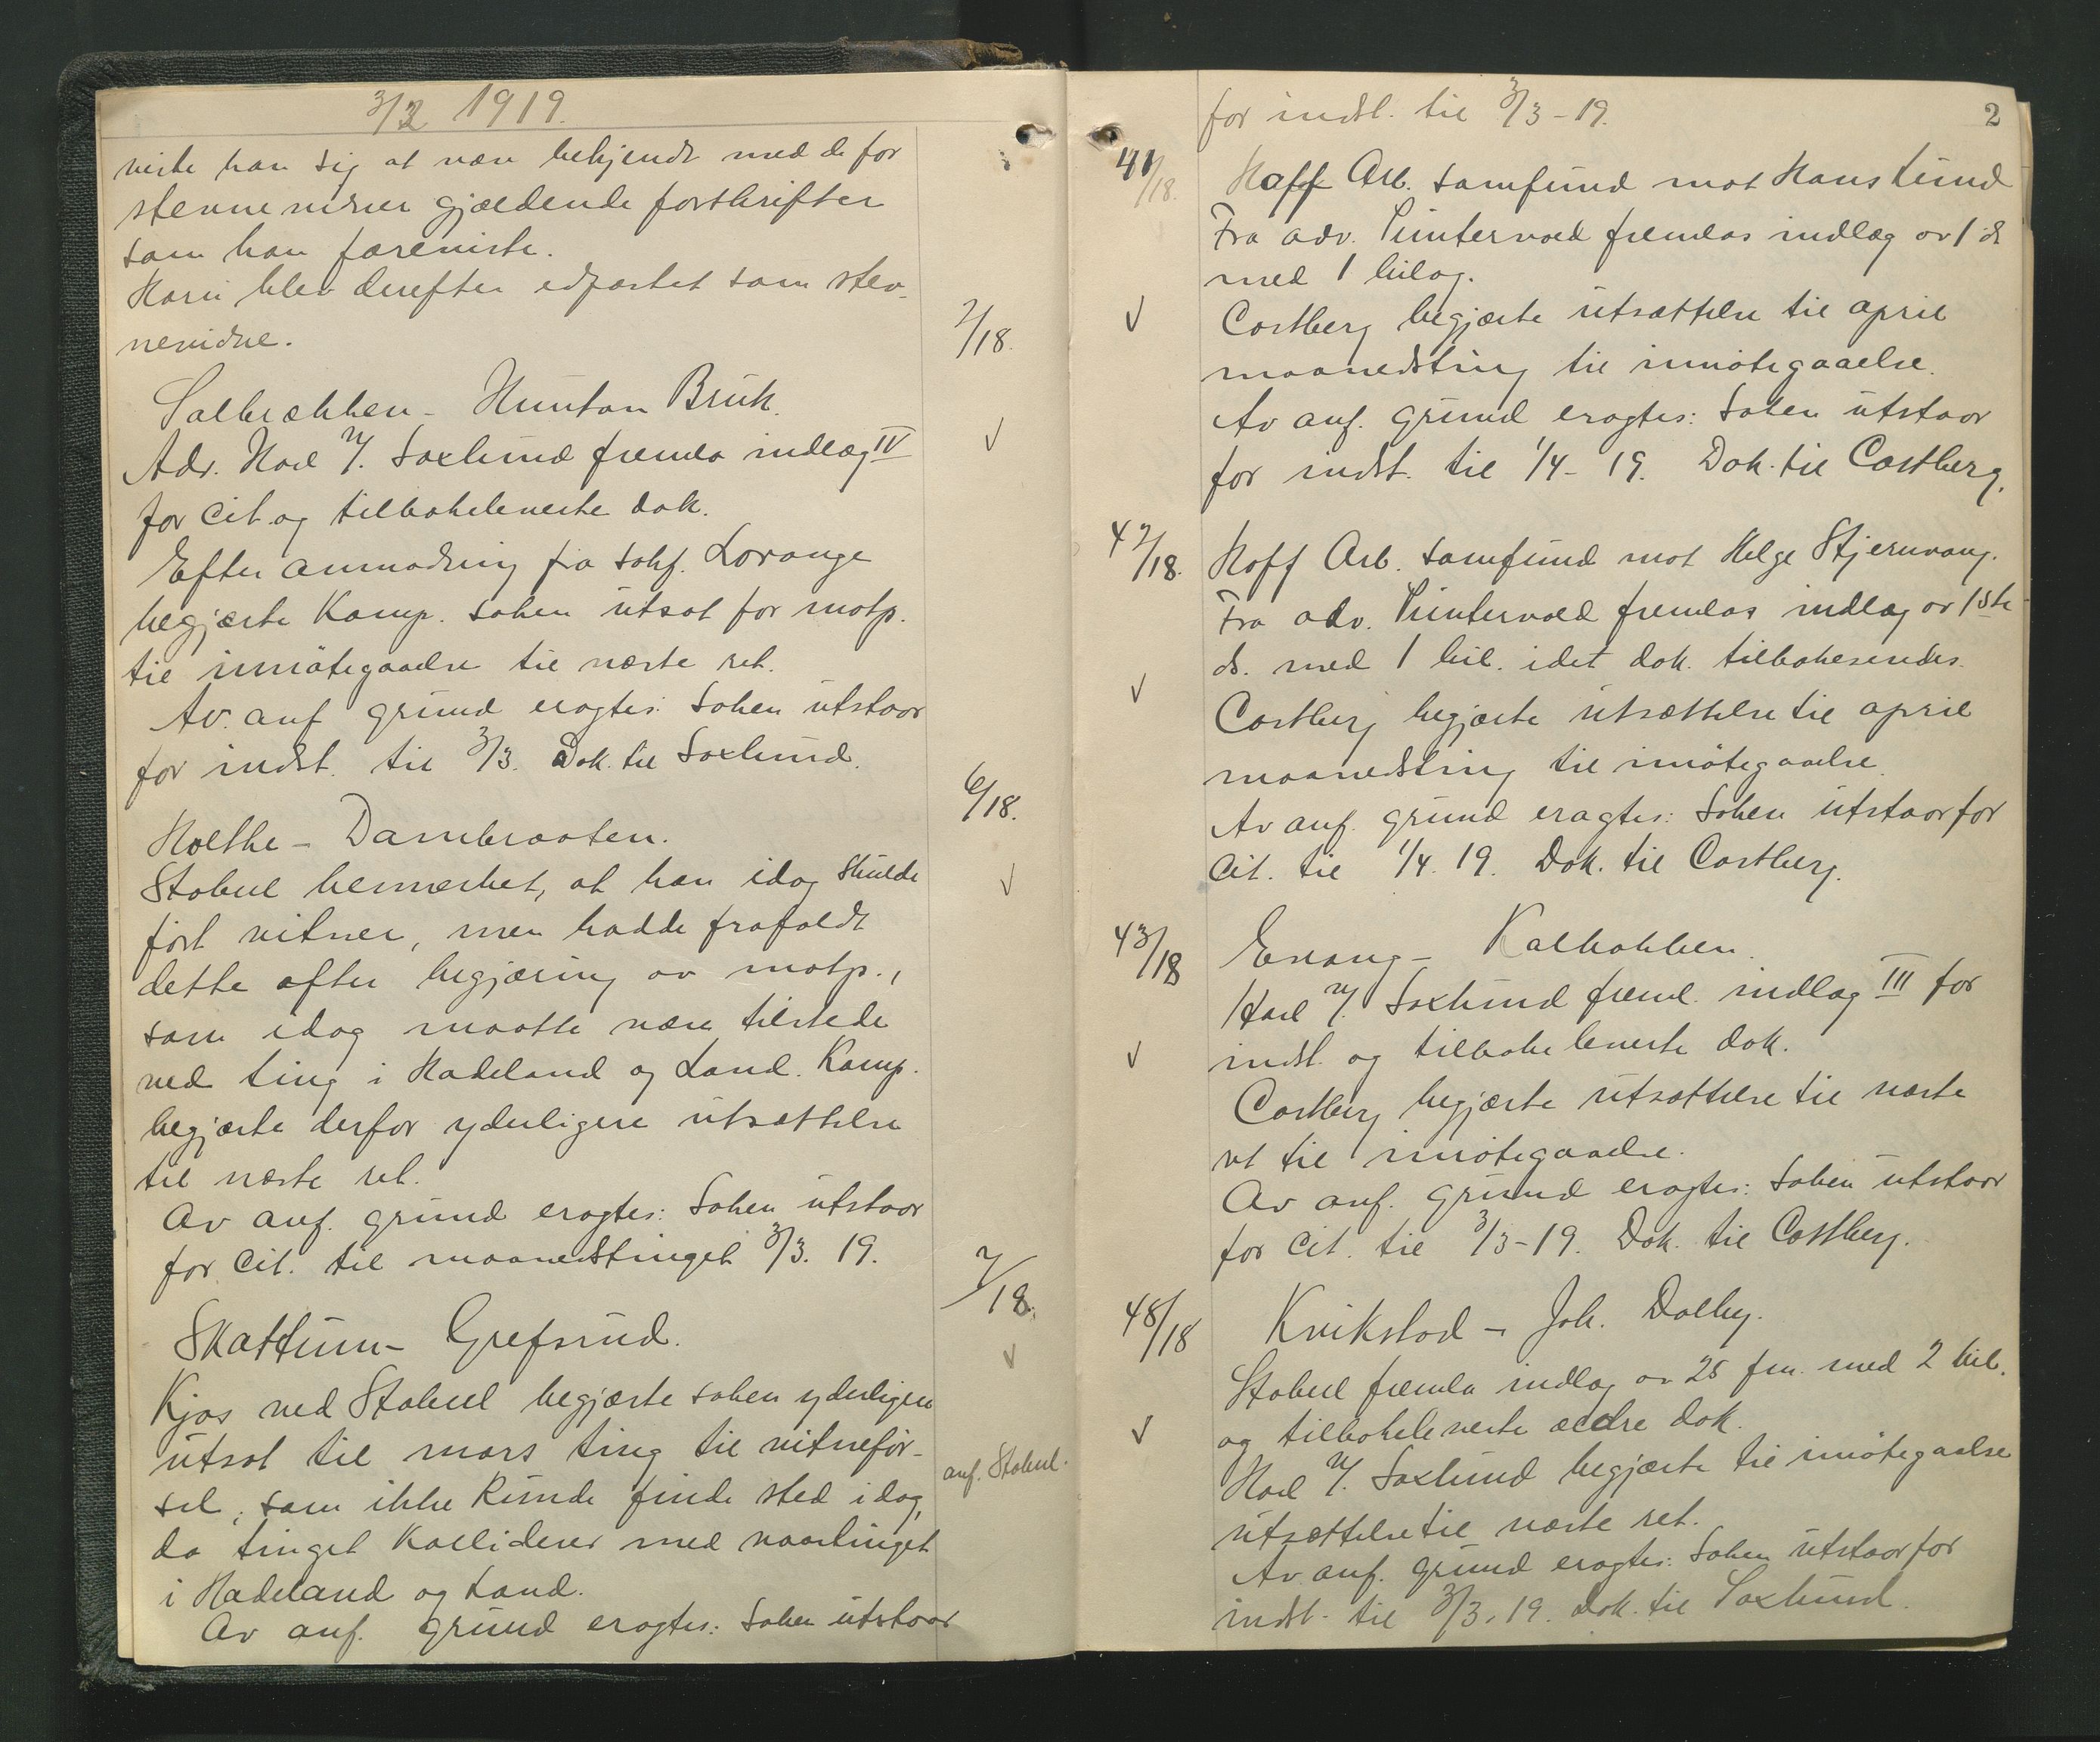 3/2 1919.
viste han sig at være bekjendt med de for
stevnevidner gjældende forskrifter
som han foreviste.
Karii blev derefter edfæstet som stev-
nevidne.
2/18.
Sælbrækken - Hunton Bruk.
Adv. Karl M. Saxlund fremla indlæg IV
for cit. og tilbakeleverte dok.
Efter anmodning fra sakf. Lorange
begjærte Kamp. saken utsat for motp.
til imøtegaaelse til næste ret.
Av anf grund eragtes: Saken utstaar
for indst. til 3/3. Dok. til Saxlund.
6/18.
Holthe - Dambraaten.
Stabell bemerket, at han idag skulde
ført vitner, men hadde frafaldt
dette efter begjæring av motp.,
som idag maatte være tilstede
ved ting i Hadeland og Land. Kamp.
begjærte derfor yderligere utsættelse
til næste ret.
Av anf. grund eragtes: Saken utstaar
for cit. til maanedstinget 3/3. 19.
7/18.
Skattum - Grefsrud.
Kjos ved Stabell begjærte saken yderligere
utsat til mars ting til vitneför-
sel, som ikke kunde finde sted idag,
da tinget kolliderer med vaartinget
i Hadeland og Land.
anf. Stabell.
Av anf. grund eragtes: Saken utstaar
2
for indst. til 3/3 - 19.
41/18.
Hoff Arb. samfund mot Hans Lund
Fra adv. Vintervold fremlas indlæg av 1 ds
med 1 bilag.
Castberg begjærte utsættelse til april
maanedsting til imøtegaaelse.
Av anf. grund eragtes: Saken utstaar
for indst. til 1/4 - 19. Dok. til Castberg.
42/18.
Hoff Arb. samfund mot Helge Stjernvang.
Fra adv. Vintervold fremlas indlæg av 1ste
ds. med 1 bil. idet dok. tilbakesendes.
Castberg begjærte utsættelse til april
maanedsting til imøtegaaelse.
Av anf. grund eragtes: Saken utstaar for
cit. til 1/4. 19. Dok. til Castberg.
43/18
Evang - Kalbakken.
Karl M. Saxlund freml. indlæg III for
indst. og tilbakeleverte dok.
Castberg begjærte utsættelse til næste
ret til imøtegaaelse.
Av anf. grund eragtes: Saken utstaar
for cit. til 3/3 - 19. Dok. til Castberg.
48/18
Kvikstad - Joh. Dalby.
Stabell fremla indlæg av 25 fm. med 2 bil.
og tilbakeleverte ældre dok.
Karl M. Saxlund begjærte til imøtegaaelse
utsættelse til næste ret.
Av anf. grund eragtes: Saken utstaar for
indst. til 3/3. 19. Dok. til Saxlund.